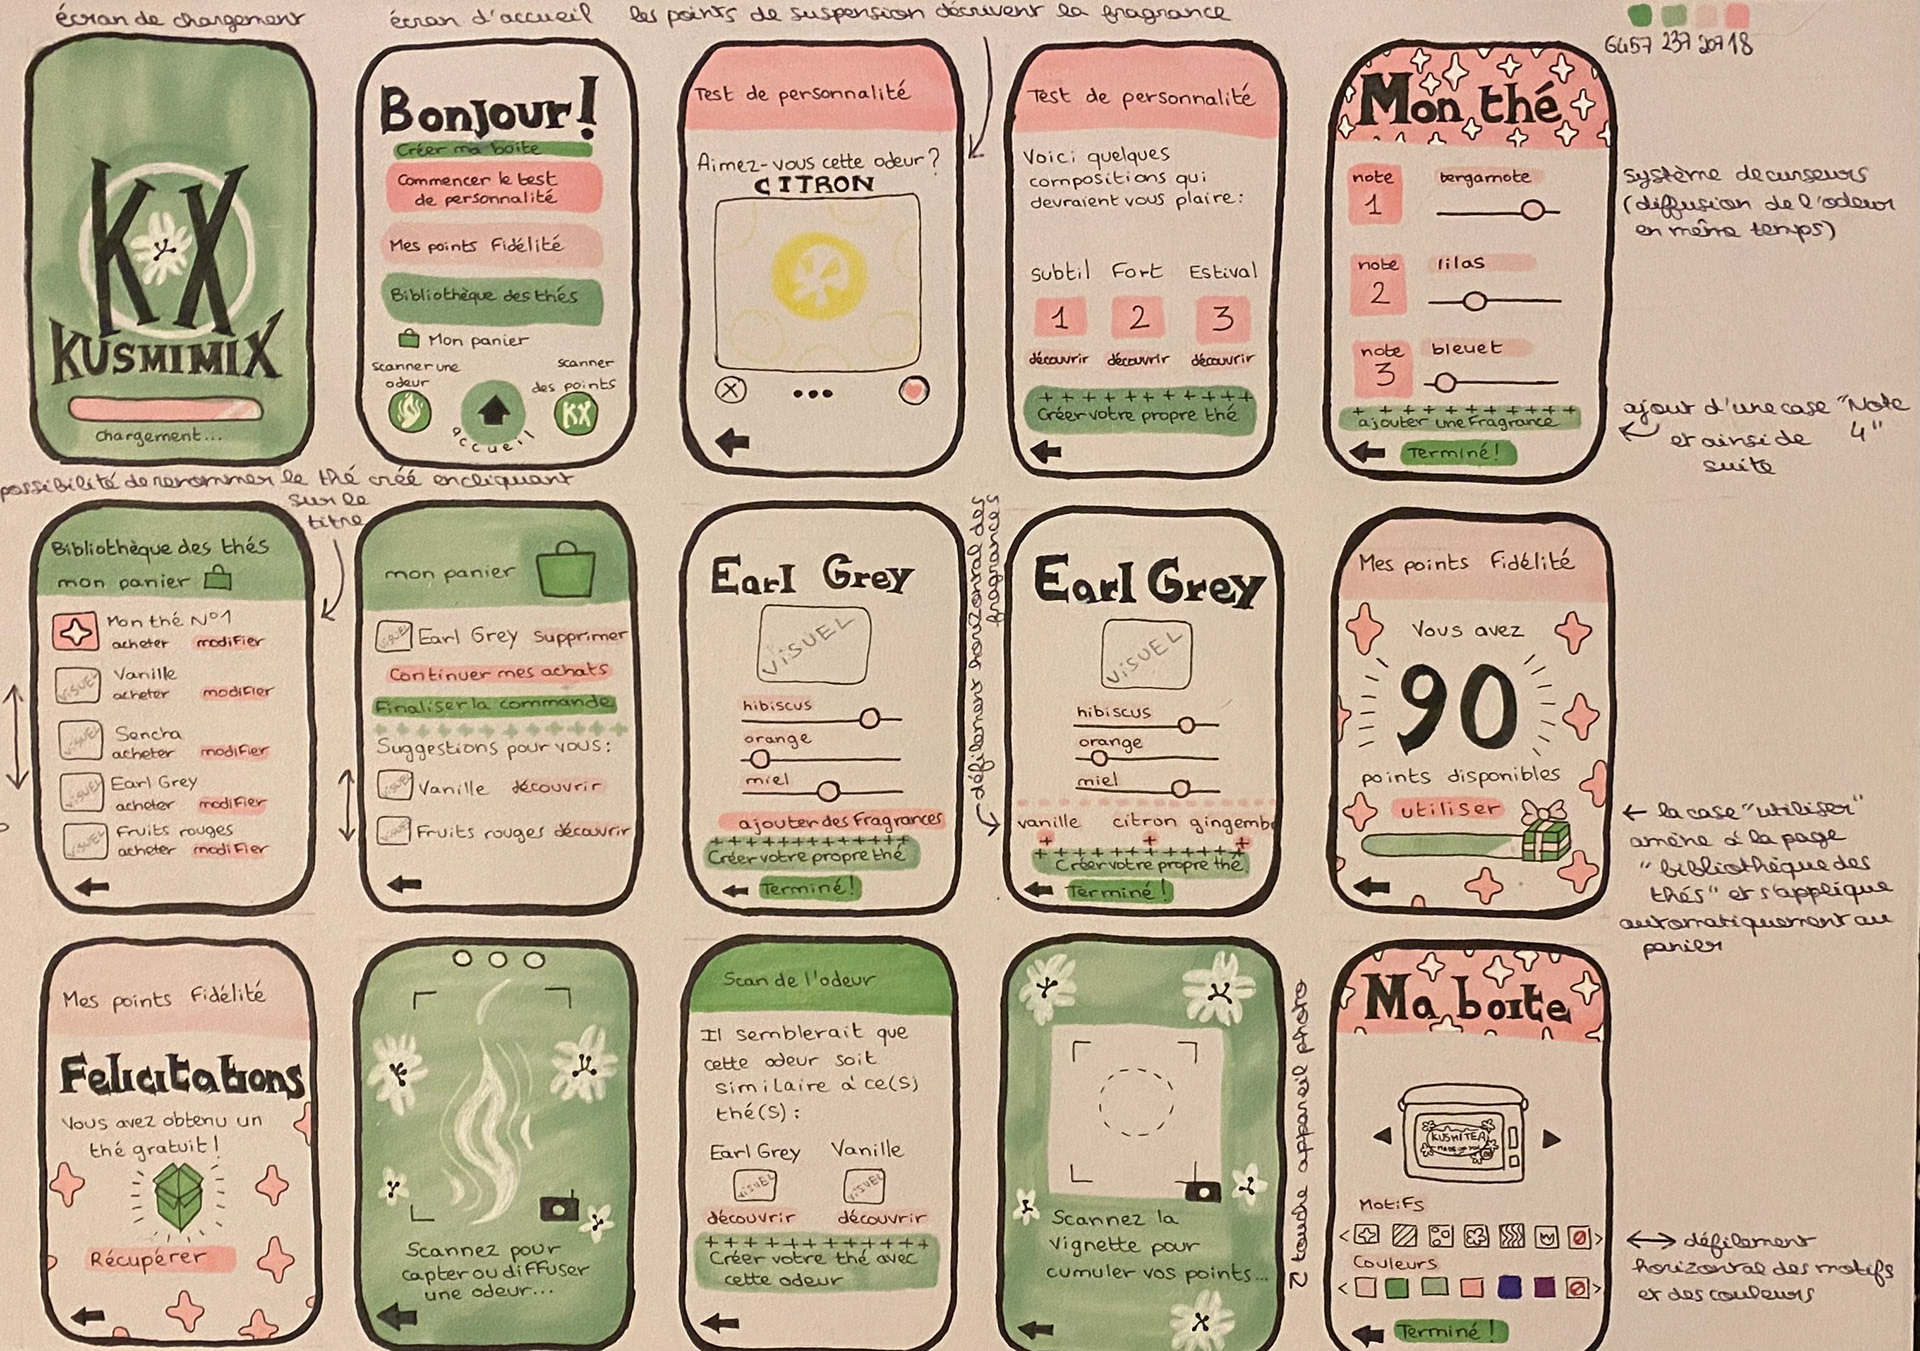 écran de chargement
écran d'accueil
les points de suspension décrivent la fragrance
6457 237 207 18
KX
KUSMIMIX
chargement...
Bonjour!
Créer ma boite
Commencer le test
de personnalité
Mes points Fidélité
Bibliothèque des thés
Mon panier
scanner une
odeur
scanner
des points
KX
accueil
Test de personnalité
Aimez-vous cette odeur?
CITRON
Test de personnalité
Voici quelques
compositions qui
devraient vous plaire:
subtil Fort Estival
1 2 3
découvrir découvrir découvrir
+ + + + + + + + + +
Créer votre propre thé
Mon thé
note
1
bergamote
note
2
lilas
note
3
bleuet
+ + + + + + + + + +
ajouter une Fragrance
Terminé!
système de curseurs
(diffusion de l'odeur
en même temps)
ajout d'une case "Note
4"
et ainsi de
suite
possibilité de renommer le thé créé en cliquant
sur le
titre
Bibliothèque des thés
mon panier
Mon thé N°1
acheter modifier
VISUEL
Vanille
acheter modifier
VISUEL
Sencha
acheter modifier
VISUEL
Earl Grey
acheter modifier
VISUEL
Fruits rouges
acheter modifier
mon panier
VISUEL
Earl Grey supprimer
Continuer mes achats
Finaliser la commande
Suggestions pour vous:
VISUEL
Vanille découvrir
VISUEL
Fruits rouges découvrir
Earl Grey
VISUEL
hibiscus
orange
miel
ajouter des Fragrances
Créer votre propre thé
Terminé!
défilement horizontal des
fragrances
Earl Grey
VISUEL
hibiscus
orange
miel
vanille citron gingemb
+ + +
Créer votre propre thé
Terminé!
Mes points Fidélité
Vous avez
90
points disponibles
utiliser
la case "utiliser"
amène à la page
"bibliothèque des
thés" et s'applique
automatiquement au
panier
Mes points Fidélité
Felicitations
Vous avez obtenu un
thé gratuit!
Récupérer
Scannez pour
capter ou diffuser
une odeur...
Scan de l'odeur
Il semblerait que
cette odeur soit
similaire à ce(s)
thé(s):
Earl Grey Vanille
VISUEL VISUEL
découvrir découvrir
+ + + + + + + + + + +
Créer votre thé avec
cette odeur
Scannez la
vignette pour
cumuler vos points...
touche appareil photo
Ma boite
KUSMITEA
Motifs
Couleurs
Terminé!
défilement
horizontal des motifs
et des couleurs